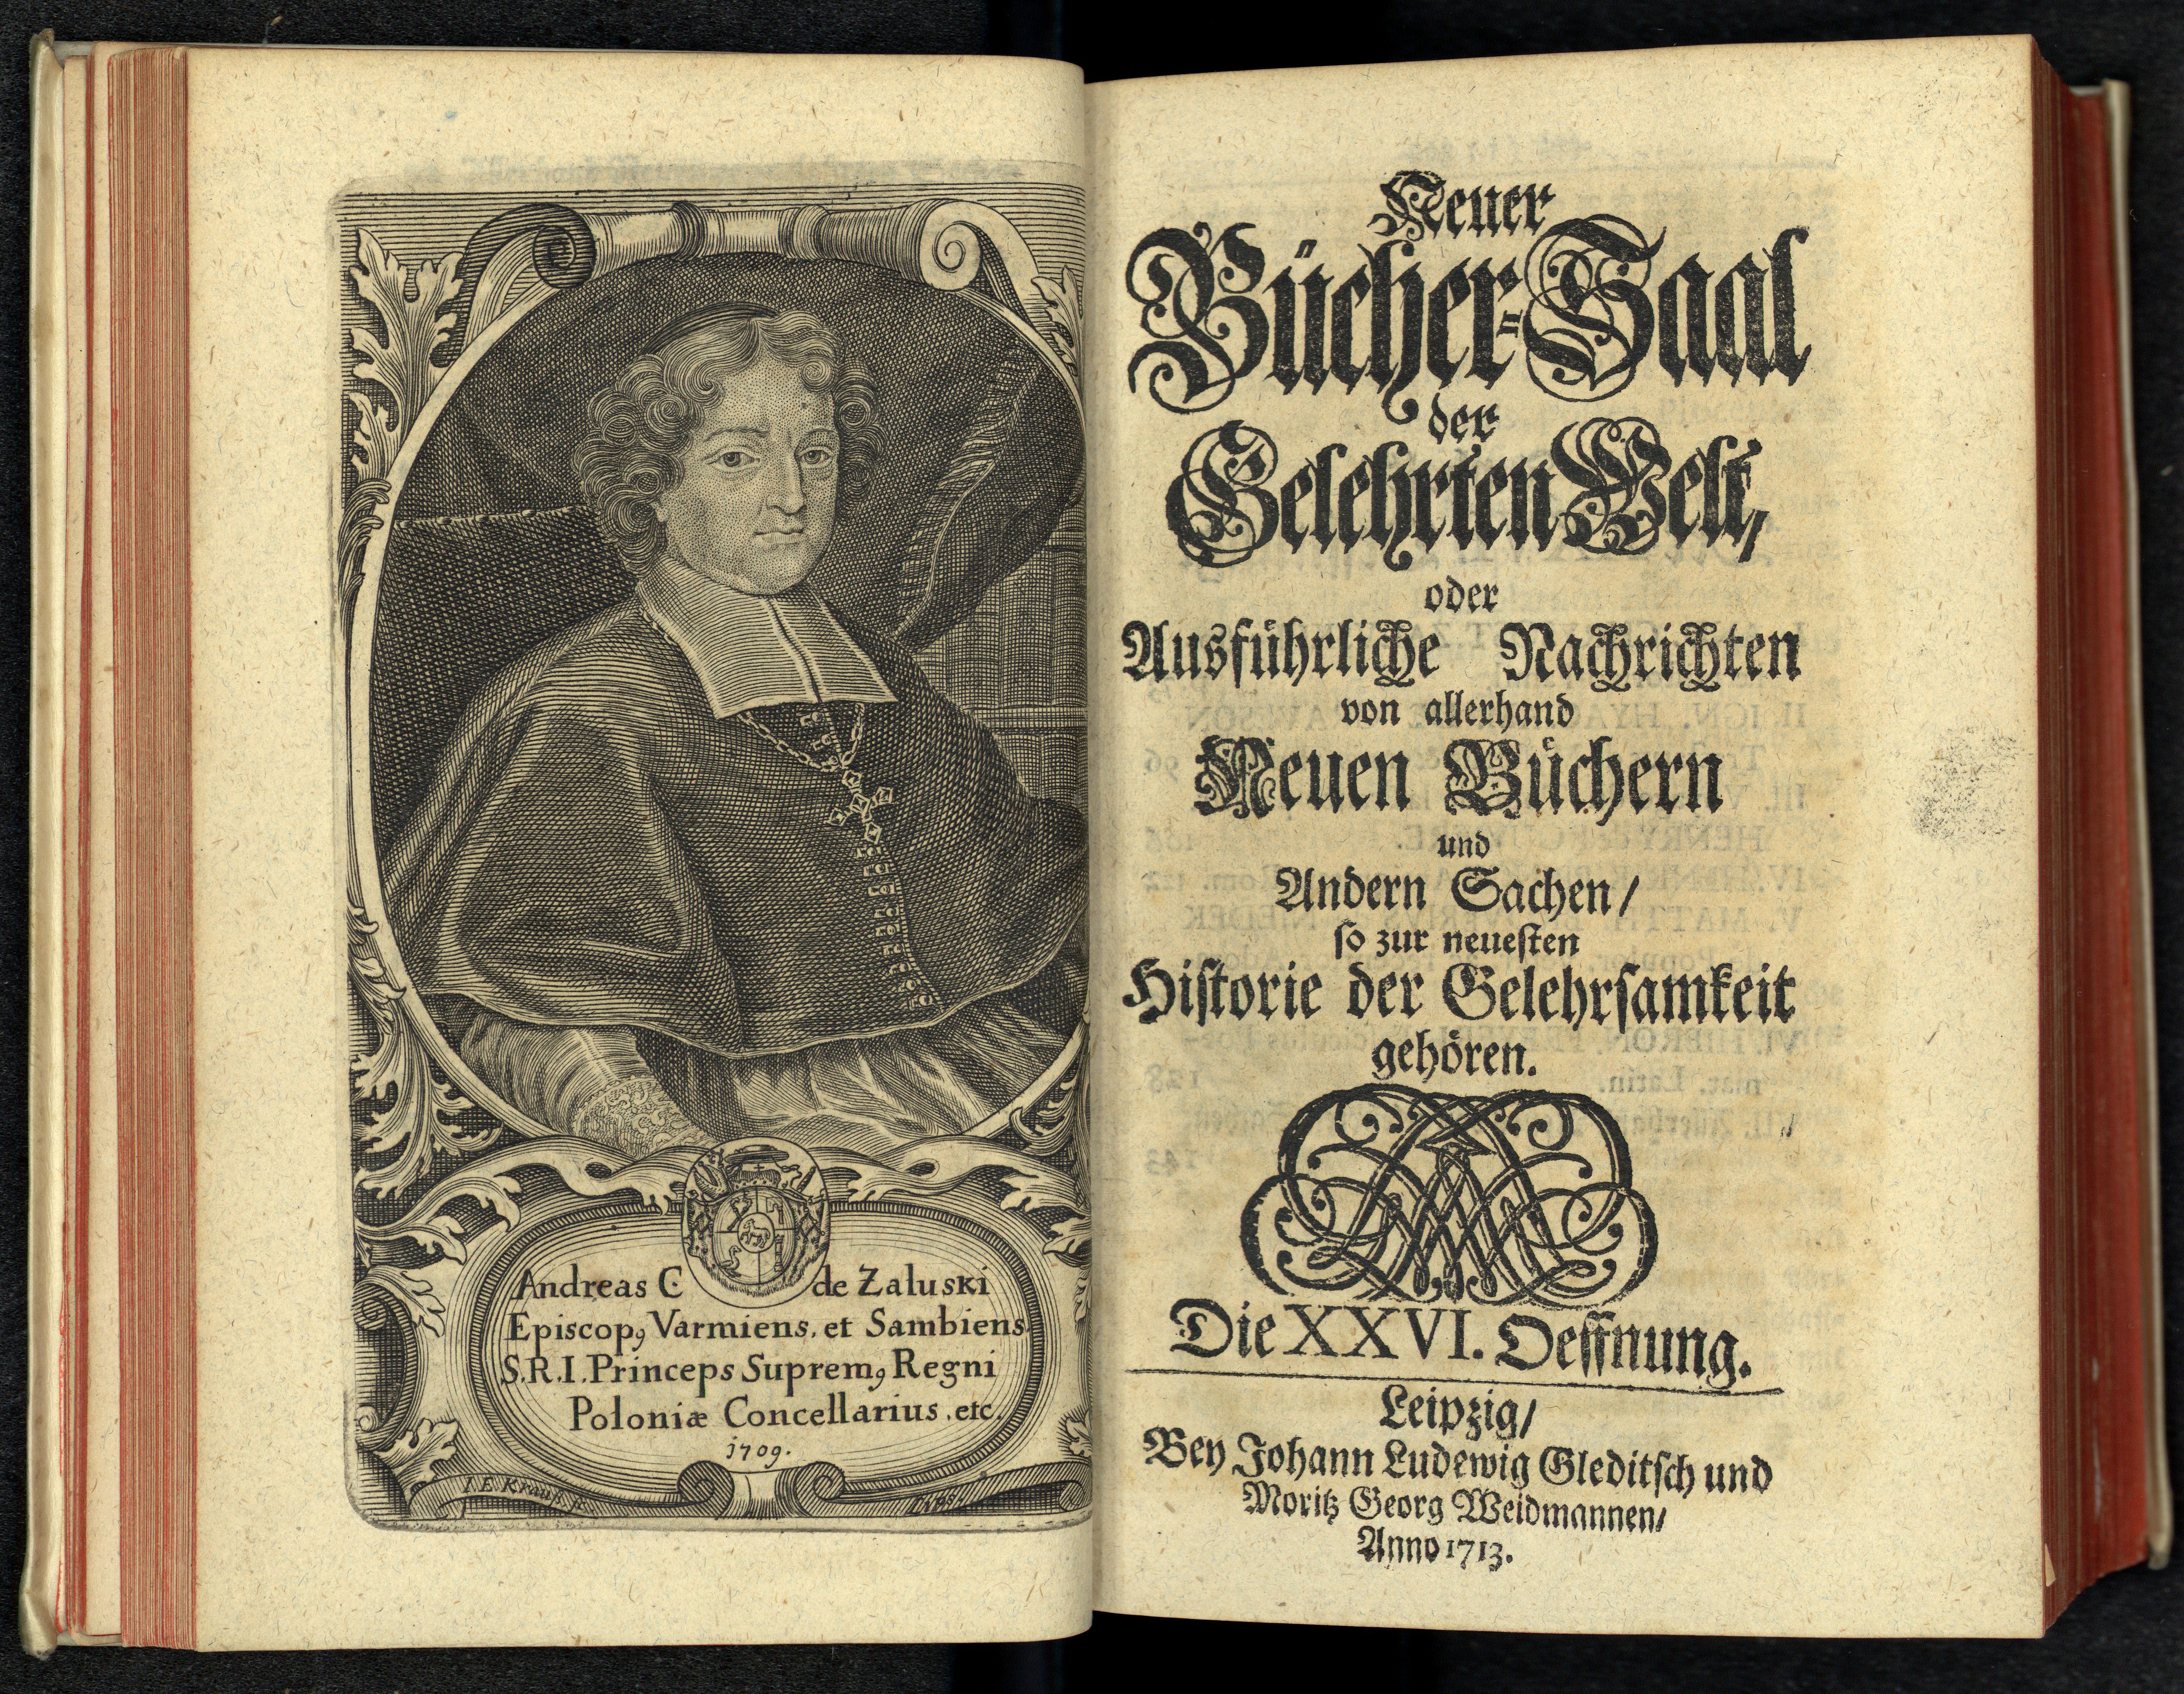 Andreas C. de Załuski
Episcopꝰ Varmiens. et Sambiens.
S.R.I. Princeps Supremꝰ Regni
Poloniæ Concellarius, etc.
1709.
I. E. Krauß. sc.
Lips.
Neuer
Bücher-Saal
der
Gelehrten Welt,
oder
Ausführliche Nachrichten
von allerhand
Neuen Büchern
und
Andern Sachen/
so zur neuesten
Historie der Gelehrsamkeit
gehören.
Die XXVI. Oeffnung.
Leipzig/
Bey Johann Ludewig Gleditsch und
Moritz Georg Weidmannen/
Anno 1713.